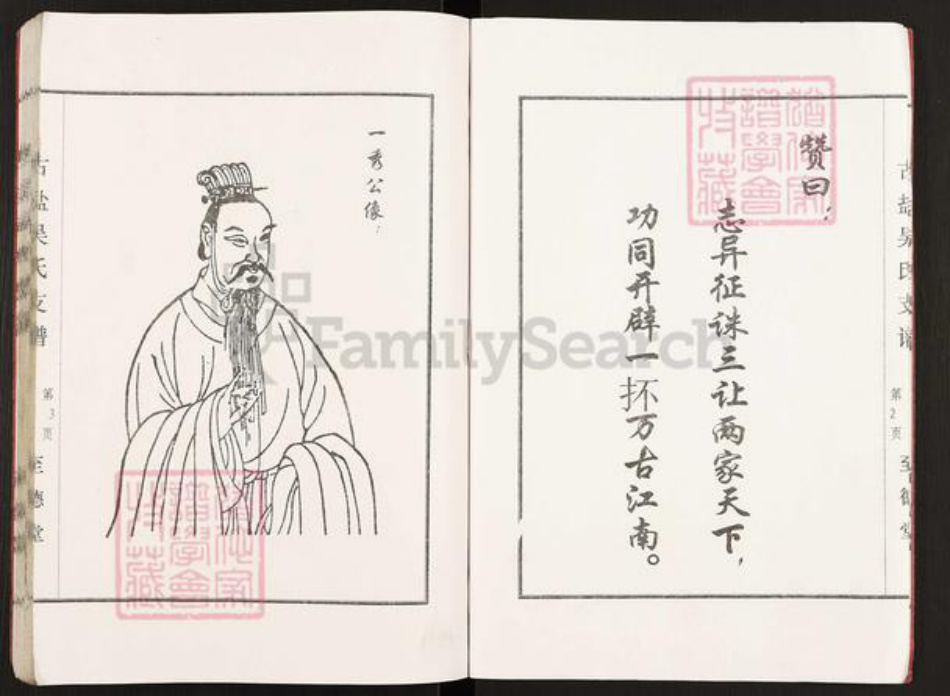 赞曰：
志异征诛三让两家天下，
功同开辟一抔万古江南。
古盐吴氏支谱
第2页
至德堂
一秀公像：
古盐吴氏支谱
第3页
至德堂
FamilySearch
譜學會
收藏
譜學會
收藏